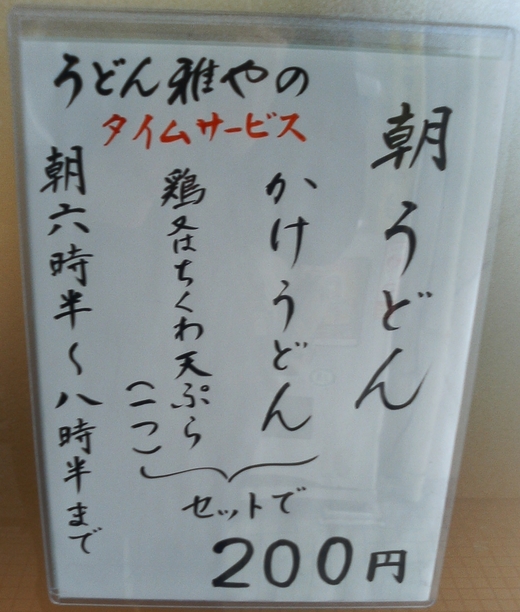 うどん雅やの
タイムサービス
朝うどん
かけうどん
鶏又はちくわ天ぷら
(一つ)
セットで
200円
朝六時半〜八時半まで